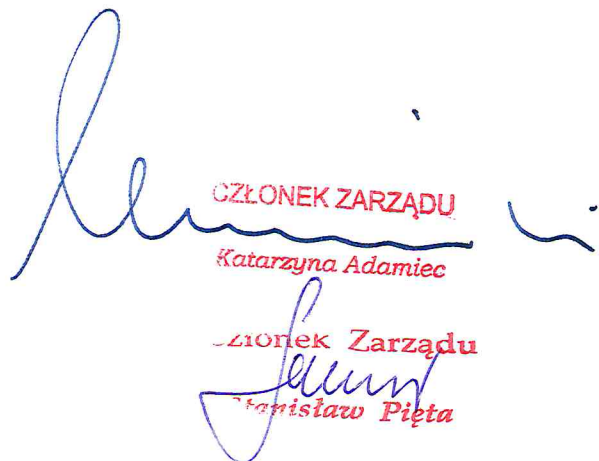 CZŁONEK ZARZĄDU
Katarzyna Adamiec
Członek Zarządu
Stanisław Pięta